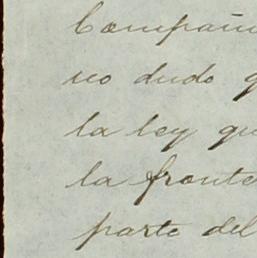 Compañi
no dudo q
la ley qu
la fronte
parte del